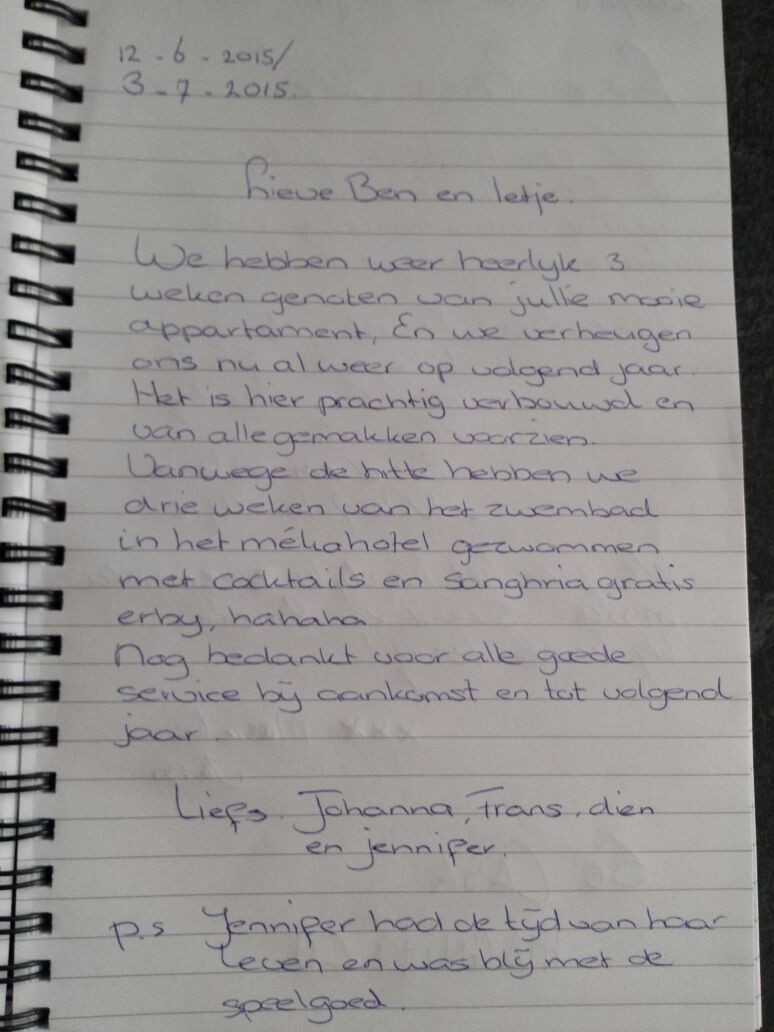 12 - 6 - 2015/
3 - 7 - 2015.
Lieve Ben en Ietje.
We hebben weer heerlyk 3
weken genoten van jullie mooie
appartament, En we verheugen
ons nu al weer op volgend jaar.
Het is hier prachtig verbouwd en
van alle gemakken voorzien.
Vanwege de hitte hebben we
drie weken van het zwembad
in het mékahotel gezwommen
met cocktails en Sanghria gratis
erby, hahaha
Nog bedankt voor alle goede
service bij aankomst en tot volgend
jaar.
Liefs Johanna, Frans, dien
en jennifer.
p.s Jennifer had de tijd van haar
leven en was blij met de
speelgoed.